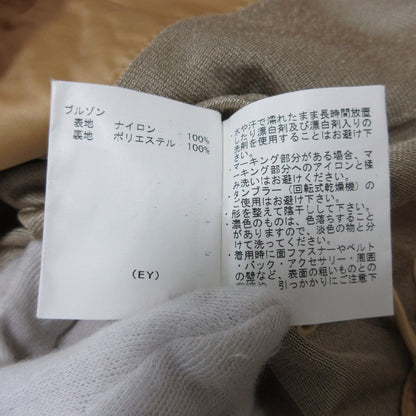 ブルゾン
表地 ナイロン 100%
裏地 ポリエステル 100%
(EY)
・水や汗で濡れたまま長時間放置
したり漂白剤及び漂白剤入りの
洗剤を使用することはお避け下
さい。
・マーキング部分がある場合、マ
ーキング部分へのアイロンと揉
み洗いはお避けください。
・タンブラー(回転式乾燥機)の
ご使用はお避け下さい。
・形を整えて陰干しして下さい。
・濃色のものは、色落ちすること
がありますので、淡色の物と分
けて洗ってください。
・着用時に面ファスナーやベルト
・バック・アクセサリー・周囲
の壁など、表面の粗いものとの
引っかかりにご注意下